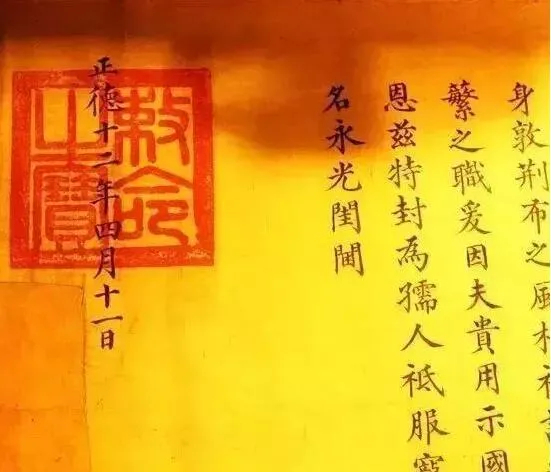 身敦荆布之風
蘩之職爰因夫貴用示國
恩茲特封為孺人祗服
名永光閨閫
正德十二年四月十一日
敕命
之寶